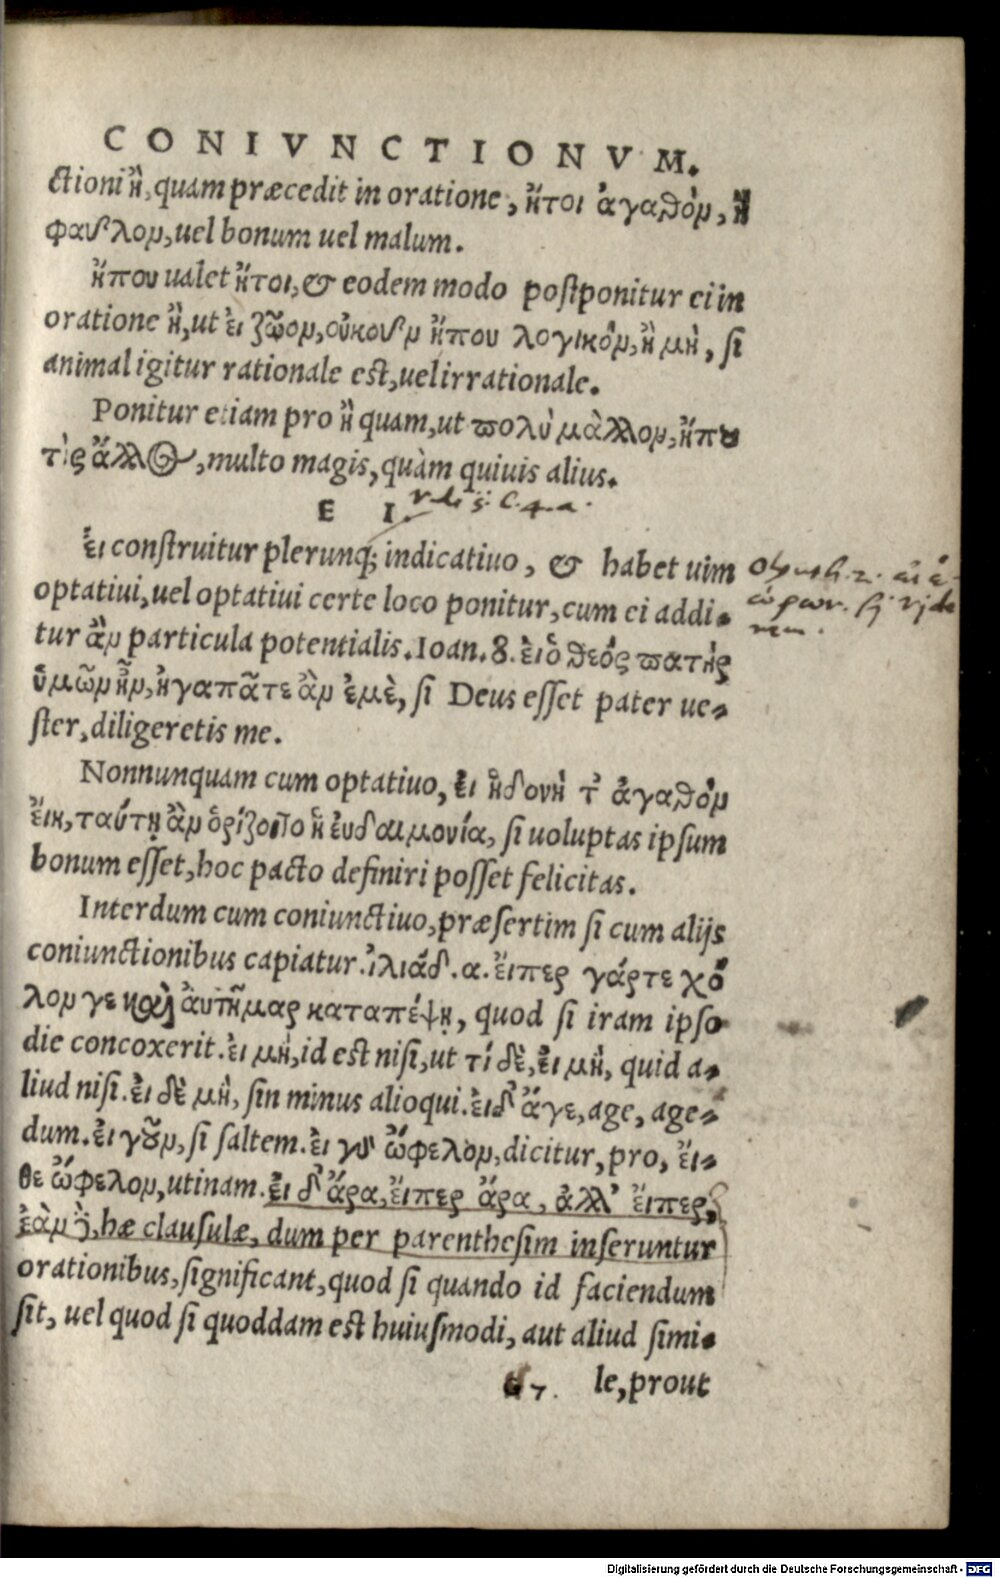 CONIVNCTIONVM.
ctioni ἢ, quam præcedit in oratione, ἤτοι ἀγαθὸν, ἢ
φαῦλον, uel bonum uel malum.
ἤπου ualet ἤτοι, & eodem modo postponitur ei in
oratione ἢ, ut ἐι ζῶον, οὐκοῦν ἤπου λογικόν, ἢ μὴ, si
animal igitur rationale est, uel irrationale.
Ponitur etiam pro ἢ quam, ut πολὺ μᾶλλον, ἤπου
τὶς ἄλλος, multo magis, quàm quiuis alius.
E I.
ἐι construitur plerunq; indicatiuo, & habet uim
optatiui, uel optatiui certe loco ponitur, cum ei addi-
tur ἂν particula potentialis. Ioan. 8. ἐι ὁ θεός πατὴρ
ὑμῶν ἦν, ἠγαπᾶτε ἂν ἐμὲ, si Deus esset pater ue-
ster, diligeretis me.
Nonnunquam cum optatiuo, ἐι ἡδονὴ τ̓ ἀγαθόν
ἔιη, ταύτῃ ἂν ὁρίζοιτο ἡ ἐυδαιμονία, si uoluptas ipsum
bonum esset, hoc pacto definiri posset felicitas.
Interdum cum coniunctiuo, præsertim si cum alijs
coniunctionibus capiatur. ἰλιάδ. α. ἔιπερ γάρτε χό
λον γε καὶ ἀυτῆμαρ καταπέψῃ, quod si iram ipso
die concoxerit. ἐι μή, id est nisi, ut τί δὲ, ἐι μὴ, quid a-
liud nisi. ἐι δὲ μὴ, sin minus alioqui. ἐιδ' ἄγε, age, age-
dum. ἐι γοῦν, si saltem. ἐι γὰ ὤφελον, dicitur, pro, ἔι-
θε ὤφελον, utinam. ἐι δ' ἄρα, ἔιπερ ἄρα, ἀλλ' ἔιπερ,
ἐὰν ᾖ, hæ clausulæ, dum per parenthesim inseruntur
orationibus, significant, quod si quando id faciendum
sit, uel quod si quoddam est huiusmodi, aut aliud simi-
le, prout
Digitalisierung gefördert durch die Deutsche Forschungsgemeinschaft - DFG